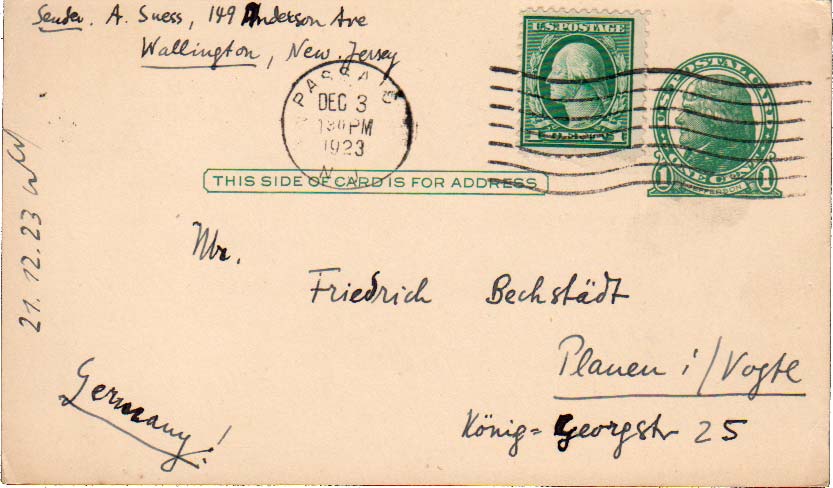 Sender A. Suess, 149 Anderson Ave
Wallington, New Jersey
U.S. POSTAGE
1 1
U.S. POSTAL CARD
ONE CENT
1 JEFFERSON 1
PASSAIC
DEC 3
130 PM
1923
N.J.
THIS SIDE OF CARD IS FOR ADDRESS
21.12.23
Mr.
Friedrich Bechstädt
Plauen i/Vogtl
König=Georgstr 25
Germany!